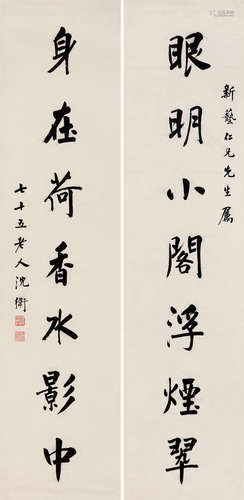 新藝仁兄先生屬
眼明小閣浮煙翠
身在荷香水影中
七十五老人沈衛